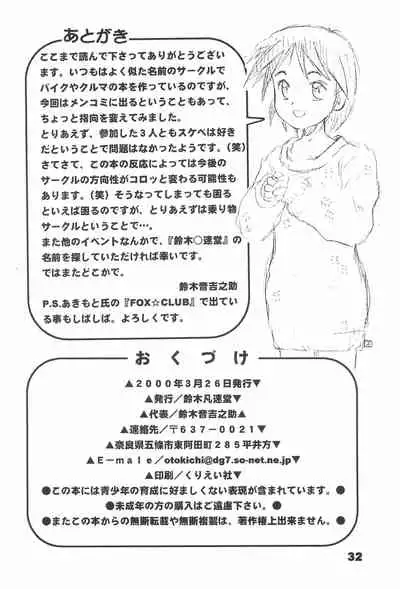 あとがき
ここまで読んで下さってありがとうござい
ます。いつもはよく似た名前のサークルで
バイクやクルマの本を作っているのですが、
今回はメンコミに出るということもあって、
ちょっと指向を変えてみました。
とりあえず、参加した3人ともスケベは好き
だということで問題はなかったようです。(笑)
さてさて、この本の反応によっては今後の
サークルの方向性がコロッと変わる可能性も
あります。(笑)そうなってしまっても困る
といえば困るのですが、とりあえずは乗り物
サークルということで…。
また他のイベントなんかで、『鈴木○速堂』の
名前を探していただければ幸いです。
ではまたどこかで。
鈴木音吉之助
P.S.あきもと氏の『FOX☆CLUB』で出てい
る事もしばしば。よろしくです。
おくづけ
▲2000年3月26日発行▼
▲発行/鈴木凡速堂▼
▲代表/鈴木音吉之助▲
▼連絡先/〒637-0021▼
▲奈良県五條市東阿田町285平井方▼
▲E-male/otokichi@dg7.so-net.ne.jp▼
▲印刷/くりえい社▼
●この本には青少年の育成に好ましくない表現が含まれています。●
●未成年の方の購入はご遠慮下さい。●
●またこの本からの無断転載や無断複製は、著作権上出来ません。●
32